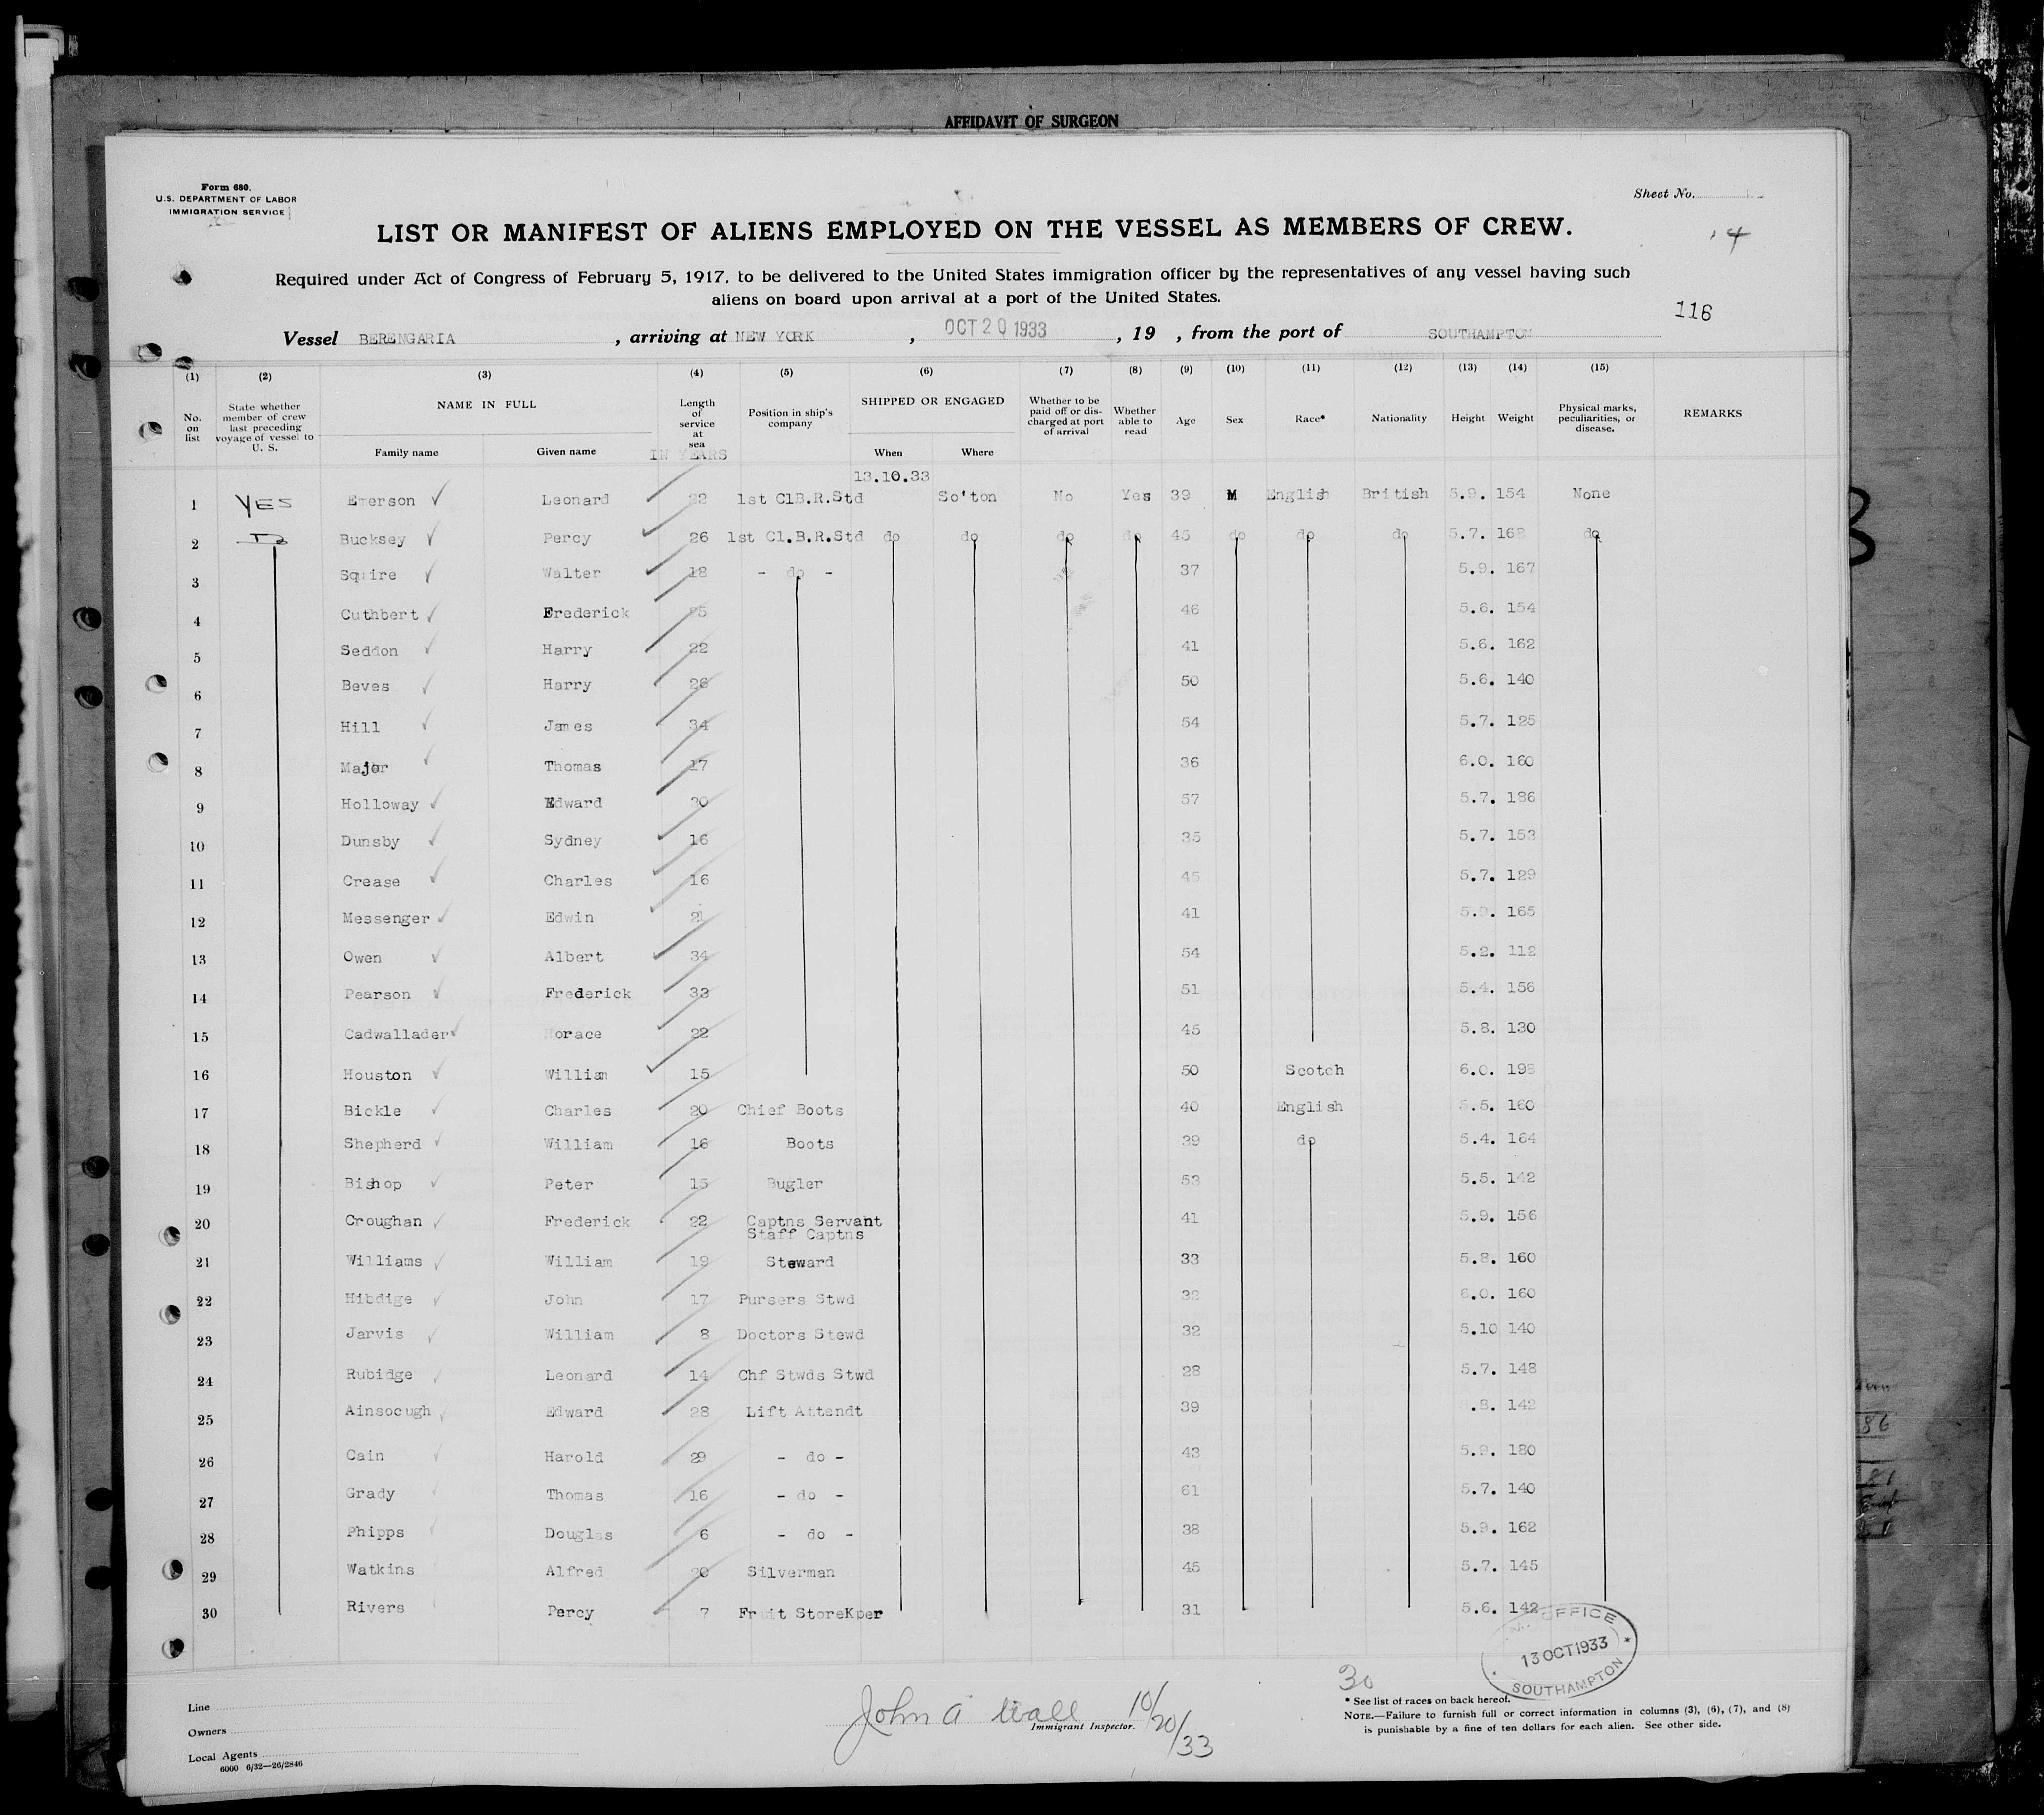 AFFIDAVIT OF SURGEON
Form 680.
U.S. DEPARTMENT OF LABOR
IMMIGRATION SERVICE
Sheet No.
LIST OR MANIFEST OF ALIENS EMPLOYED ON THE VESSEL AS MEMBERS OF CREW.
Required under Act of Congress of February 5, 1917, to be delivered to the United States immigration officer by the representatives of any vessel having such
aliens on board upon arrival at a port of the United States.
116
Vessel BERENGARIA , arriving at NEW YORK , OCT 20 1933 , 19 , from the port of SOUTHAMPTON
(1) (2) (3) (4) (5) (6) (7) (8) (9) (10) (11) (12) (13) (14) (15)
No. on list State whether member of crew last preceding voyage of vessel to U. S. NAME IN FULL Family name Given name Length of service at sea IN YEARS Position in ship's company SHIPPED OR ENGAGED When Where Whether to be paid off or discharged at port of arrival Whether able to read Age Sex Race* Nationality Height Weight Physical marks, peculiarities, or disease. REMARKS
13.10.33
1 YES Emerson Leonard 22 1st ClB.R.Std So'ton No Yes 39 M English British 5.9. 154 None
2 Do Bucksey Percy 26 1st Cl.B.R.Std do do do do 45 do do do 5.7. 162 do
3 Squire Walter 18 - do - 37 5.9. 167
4 Cuthbert Frederick 46 5.6. 154
5 Seddon Harry 22 41 5.6. 162
6 Beves Harry 26 50 5.6. 140
7 Hill James 34 54 5.7. 125
8 Major Thomas 17 36 6.0. 160
9 Holloway Edward 30 57 5.7. 186
10 Dunsby Sydney 16 35 5.7. 153
11 Crease Charles 16 45 5.7. 129
12 Messenger Edwin 21 41 5.9. 165
13 Owen Albert 34 54 5.2. 112
14 Pearson Frederick 33 51 5.4. 156
15 Cadwallader Horace 22 45 5.8. 130
16 Houston William 15 50 Scotch 6.0. 198
17 Bickle Charles 20 Chief Boots 40 English 5.5. 160
18 Shepherd William 16 Boots 39 do 5.4. 164
19 Bishop Peter 15 Bugler 53 5.5. 142
20 Croughan Frederick 22 Captns Servant 41 5.9. 156
Staff Captns
21 Williams William 19 Steward 33 5.8. 160
22 Hibdige John 17 Pursers Stwd 32 6.0. 160
23 Jarvis William 8 Doctors Stewd 32 5.10 140
24 Rubidge Leonard 14 Chf Stwds Stwd 28 5.7. 148
25 Ainsocugh Edward 28 Lift Attendt 39 .8. 142
26 Cain Harold 29 - do - 43 5.9. 180
27 Grady Thomas 16 - do - 61 5.7. 140
28 Phipps Douglas 6 - do - 38 5.9. 162
29 Watkins Alfred 20 Silverman 45 5.7. 145
30 Rivers Percy 7 Fruit StoreKper 31 5.6. 142
OFFICE
13 OCT 1933
SOUTHAMPTON
30
Line
Owners
Local Agents
6000 6/32—26/2846
John A Wall 10/20/33
Immigrant Inspector.
* See list of races on back hereof.
NOTE.—Failure to furnish full or correct information in columns (3), (6), (7), and (8)
is punishable by a fine of ten dollars for each alien. See other side.